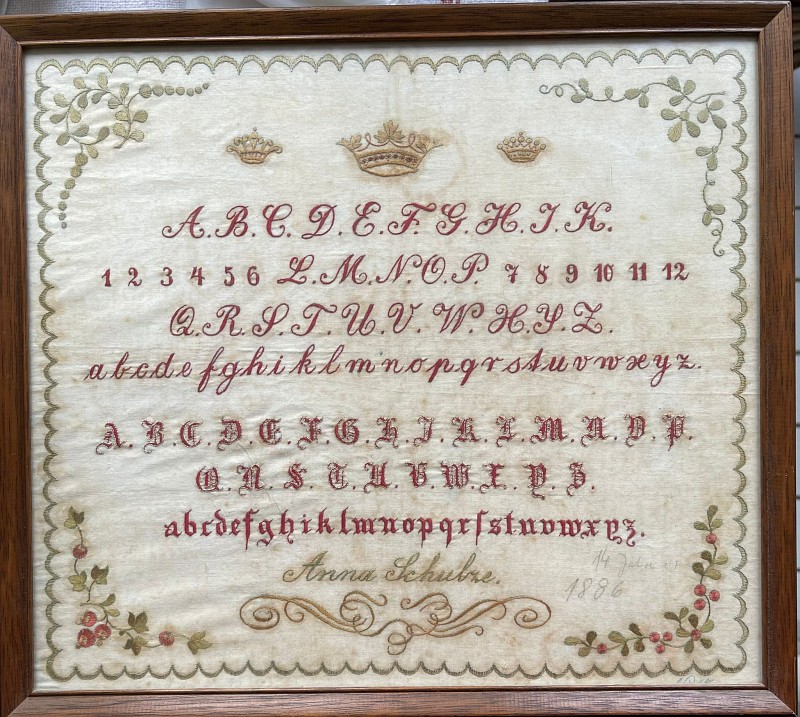 A. B. C. D. E. F. G. H. I. K.
1 2 3 4 5 6 L. M. N. O. P. 7 8 9 10 11 12
Q. R. S. T. U. V. W. X. Y. Z.
a b c d e f g h i k l m n o p q r s t u v w x y z.
A. B. C. D. E. F. G. H. I. K. L. M. N. O. P.
Q. R. S. T. U. V. W. X. Y. Z.
a b c d e f g h i k l m n o p q r ſ s t u v w x y z.
Anna Schulze.
14 Jahre
1886